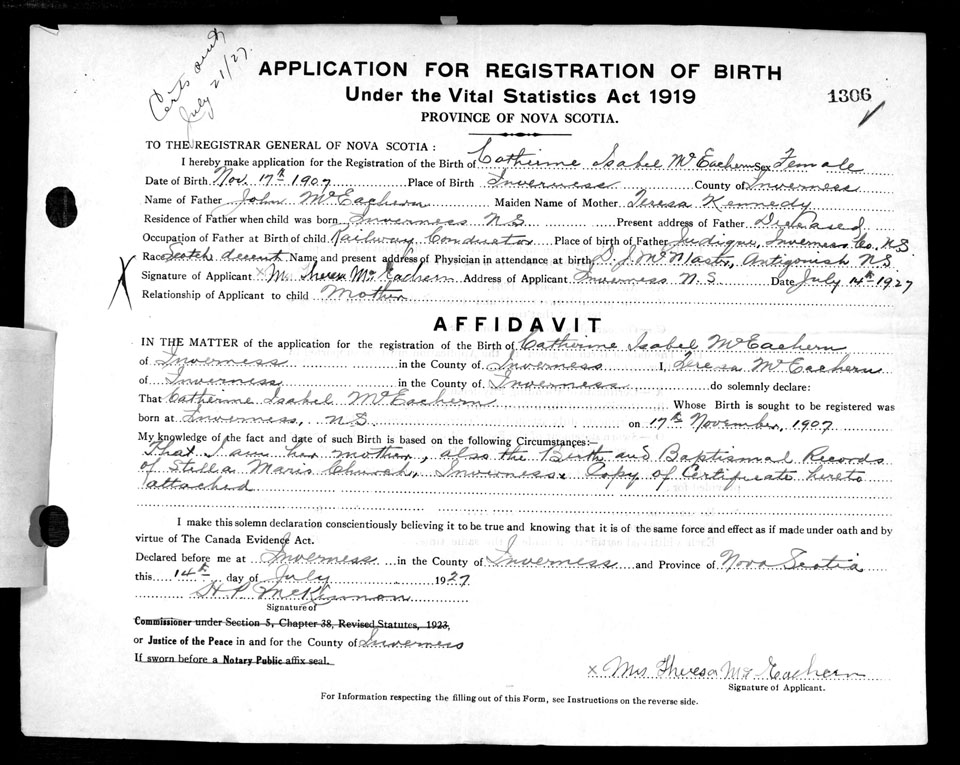 Certs sent
July 21/27.
APPLICATION FOR REGISTRATION OF BIRTH
Under the Vital Statistics Act 1919
1306
PROVINCE OF NOVA SCOTIA.
TO THE REGISTRAR GENERAL OF NOVA SCOTIA :
I hereby make application for the Registration of the Birth of Catherine Isabel McEachern Sex Female
Date of Birth Nov. 17th 1907 Place of Birth Inverness County of Inverness
Name of Father John McEachern Maiden Name of Mother Teresa Kennedy
Residence of Father when child was born Inverness N.S Present address of Father Deceased,
Occupation of Father at Birth of child Railway Conductor Place of birth of Father Judique, Inverness Co. N.S
Race Scotch decent Name and present address of Physician in attendance at birth D. J. McMaster, Antigonish N.S.
Signature of Applicant x M. Theresa Mc Eachern Address of Applicant Inverness N.S Date July 14th 1927
Relationship of Applicant to child Mother
AFFIDAVIT
IN THE MATTER of the application for the registration of the Birth of Catherine Isabel McEachern
of Inverness in the County of Inverness I, Teresa McEachern
of Inverness in the County of Inverness do solemnly declare:
That Catherine Isabel McEachern Whose Birth is sought to be registered was
born at Inverness, N.S. on 17th November, 1907
My knowledge of the fact and date of such Birth is based on the following Circumstances:—
That I am her mother, also the Birth and Baptismal Records
of Stella Maris Church, Inverness. Copy of Certificate hereto
attached
I make this solemn declaration conscientiously believing it to be true and knowing that it is of the same force and effect as if made under oath and by
virtue of The Canada Evidence Act.
Declared before me at Inverness in the County of Inverness and Province of Nova Scotia
this 14th day of July 1927
H P McKinnon
Signature of
Commissioner under Section 5, Chapter 38, Revised Statutes, 1923,
or Justice of the Peace in and for the County of Inverness
If sworn before a Notary Public affix seal.
x Mrs Theresa Mc Eachern
Signature of Applicant.
For Information respecting the filling out of this Form, see Instructions on the reverse side.